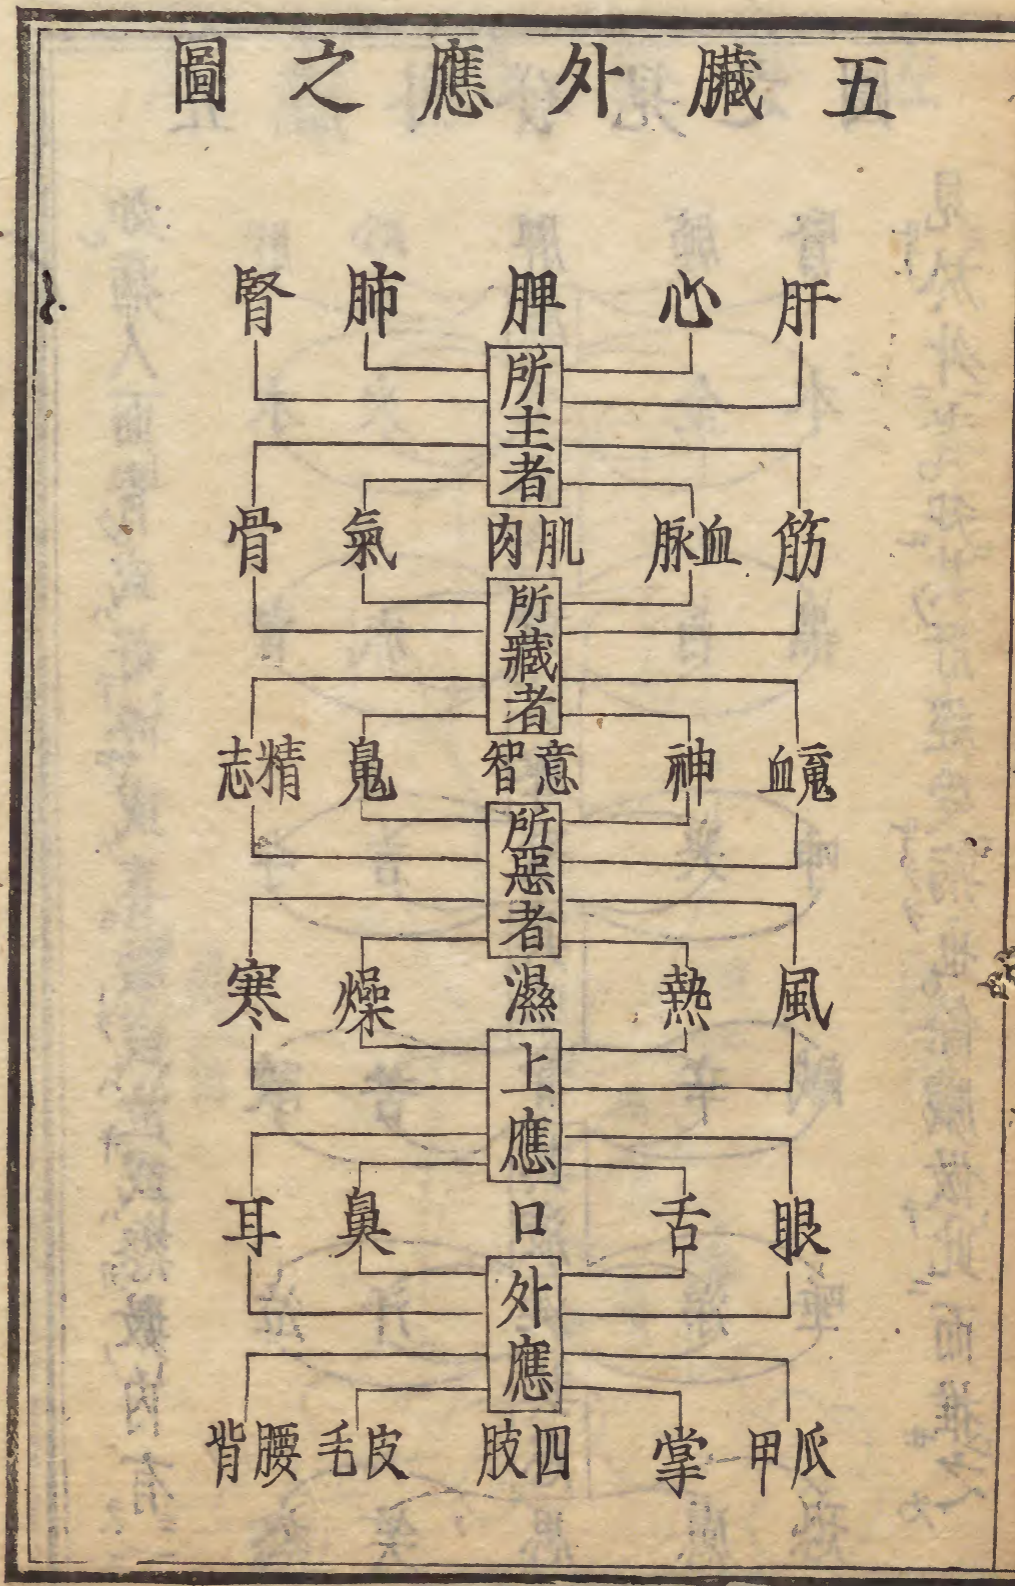 五臟外應之圖
肝 心 脾 肺 腎
所主者
筋 血脉 肌肉 氣 骨
所藏者
䰟血 神 意智 鬼 精志
所惡者
風 熱 濕 燥 寒
上應
眼 舌 口 鼻 耳
外應
爪甲 掌 四肢 皮毛 腰背